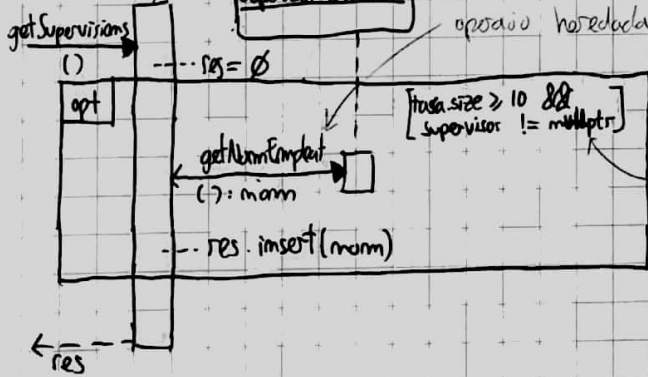 getSupervisions
()
res = ∅
heredada
opt
[tasa.size ≥ 10 &&
supervisor != nullptr]
getNomEmpleat
(): nom
res.insert(nom)
res